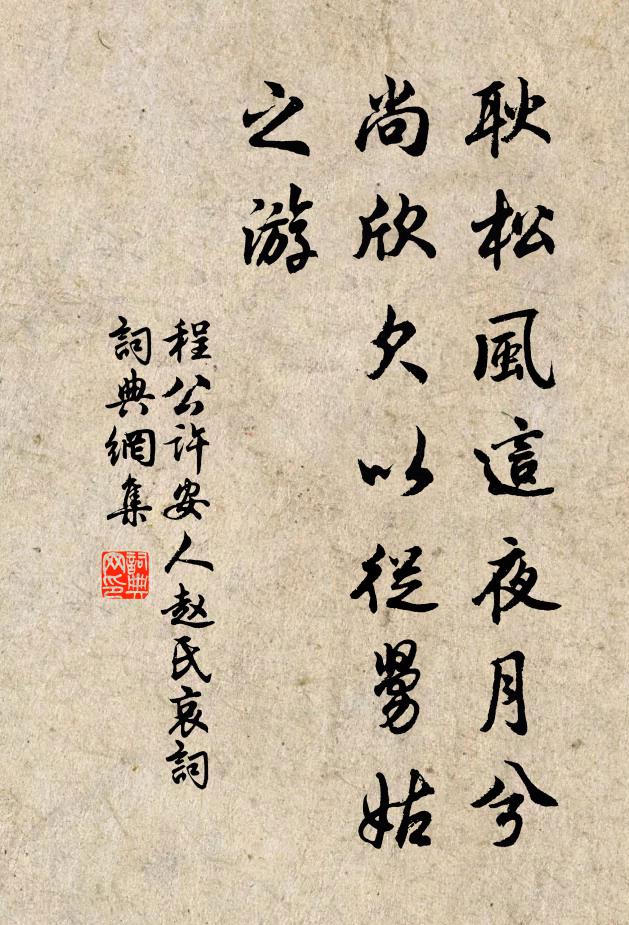 耿松風這夜月兮
尚欣欠以從舅姑
之游
程公許安人赵氏哀詞
詞典網集
詞典网印